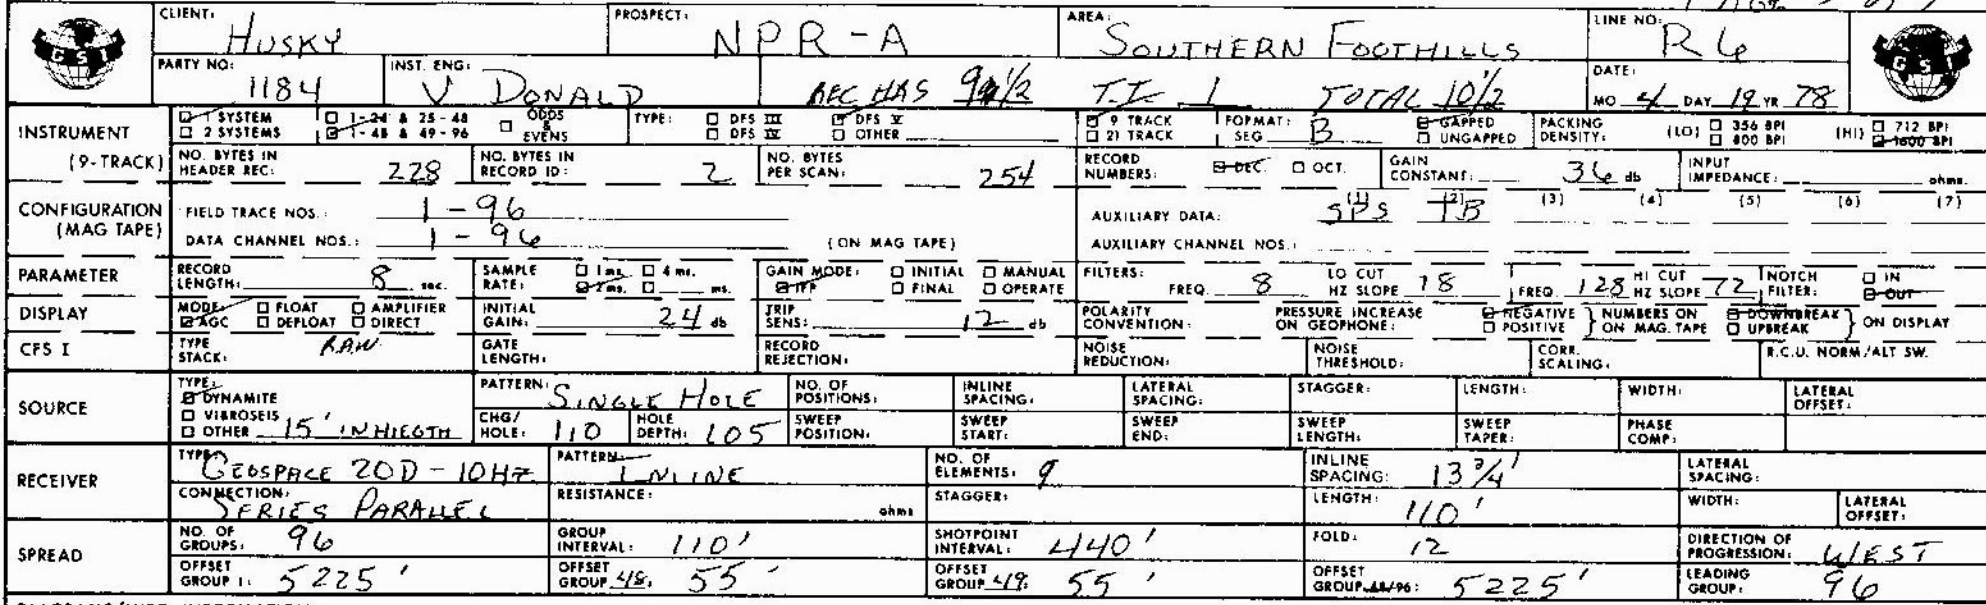 CLIENT: HUSKY PROSPECT: NPR-A AREA: SOUTHERN FOOTHILLS LINE NO: R6
GSI GSI
PARTY NO: 1184 INST. ENG: V DONALD REC HAS 9 1/2 T.I. 1 TOTAL 10 1/2 DATE: MO 4 DAY 19 YR 78
INSTRUMENT (9-TRACK)
1 SYSTEM 1-24 & 25-48 ODDS & EVENS TYPE: DFS III DFS V 9 TRACK FORMAT: SEG B GAPPED PACKING DENSITY: (LO) 356 BPI (HI) 712 BPI
2 SYSTEMS 1-48 & 49-96 DFS IV OTHER 21 TRACK UNGAPPED 800 BPI 1600 BPI
NO. BYTES IN HEADER REC: 228 NO. BYTES IN RECORD ID: 2 NO. BYTES PER SCAN: 254 RECORD NUMBERS: DEC. OCT. GAIN CONSTANT: 36 db INPUT IMPEDANCE: ohms.
CONFIGURATION (MAG TAPE)
FIELD TRACE NOS.: 1-96 AUXILIARY DATA: (1) SPS (2) TB (3) (4) (5) (6) (7)
DATA CHANNEL NOS.: 1-96 (ON MAG TAPE) AUXILIARY CHANNEL NOS.:
PARAMETER RECORD LENGTH: 8 sec. SAMPLE RATE: 1 ms. 4 ms. 2 ms. ms. GAIN MODE: INITIAL MANUAL IFP FINAL OPERATE FILTERS: FREQ. 8 LO CUT HZ SLOPE 18 FREQ 128 HI CUT HZ SLOPE 72 NOTCH FILTER: IN OUT
DISPLAY MODE: FLOAT AMPLIFIER AGC DEFLOAT DIRECT INITIAL GAIN: 24 db TRIP SENS: 12 db POLARITY CONVENTION: PRESSURE INCREASE ON GEOPHONE: NEGATIVE POSITIVE NUMBERS ON ON MAG. TAPE DOWNBREAK UPBREAK ON DISPLAY
CFS I TYPE STACK: RAW GATE LENGTH: RECORD REJECTION: NOISE REDUCTION: NOISE THRESHOLD: CORR. SCALING: R.C.U. NORM/ALT SW.
SOURCE
TYPE: DYNAMITE PATTERN: SINGLE HOLE NO. OF POSITIONS: INLINE SPACING: LATERAL SPACING: STAGGER: LENGTH: WIDTH: LATERAL OFFSET:
VIBROSEIS OTHER 15' IN HIEGTH CHG/HOLE: 110 HOLE DEPTH: 105 SWEEP POSITION: SWEEP START: SWEEP END: SWEEP LENGTH: SWEEP TAPER: PHASE COMP:
RECEIVER
TYPE: GEOSPACE 20D-10HZ PATTERN: INLINE NO. OF ELEMENTS: 9 INLINE SPACING: 13 3/4' LATERAL SPACING:
CONNECTION: SERIES PARALLEL RESISTANCE: ohms STAGGER: LENGTH: 110' WIDTH: LATERAL OFFSET:
SPREAD
NO. OF GROUPS: 96 GROUP INTERVAL: 110' SHOTPOINT INTERVAL: 440' FOLD: 12 DIRECTION OF PROGRESSION: WEST
OFFSET GROUP 1: 5225' OFFSET GROUP 48: 55' OFFSET GROUP 49: 55' OFFSET GROUP 48/96: 5225' LEADING GROUP: 96